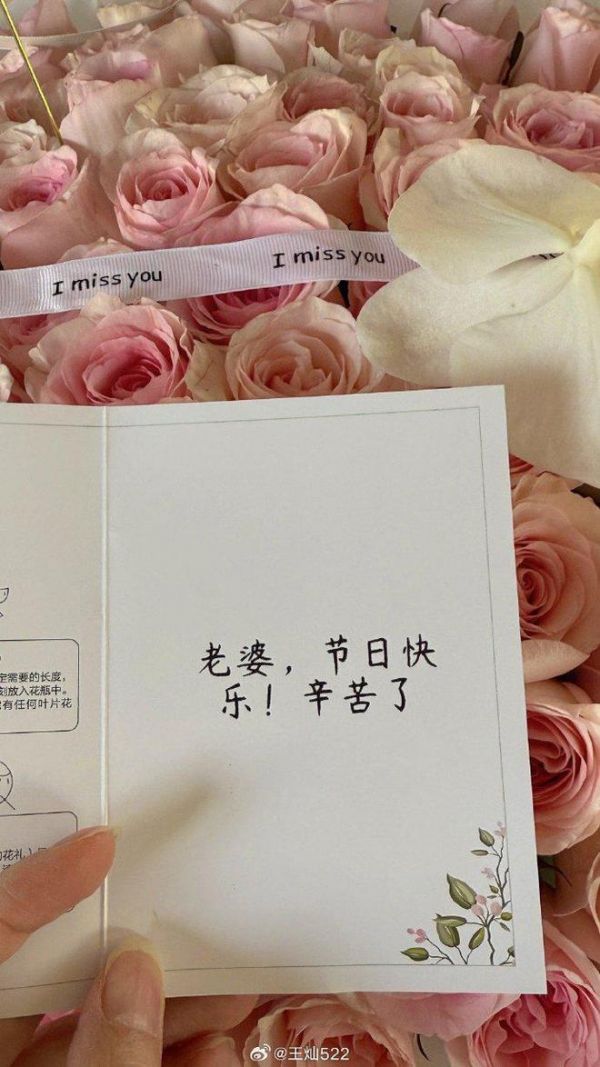 I miss you
I miss you
老婆，节日快
乐！辛苦了
需要的长度，
放入花瓶中。
有任何叶片花
花礼
@王灿522